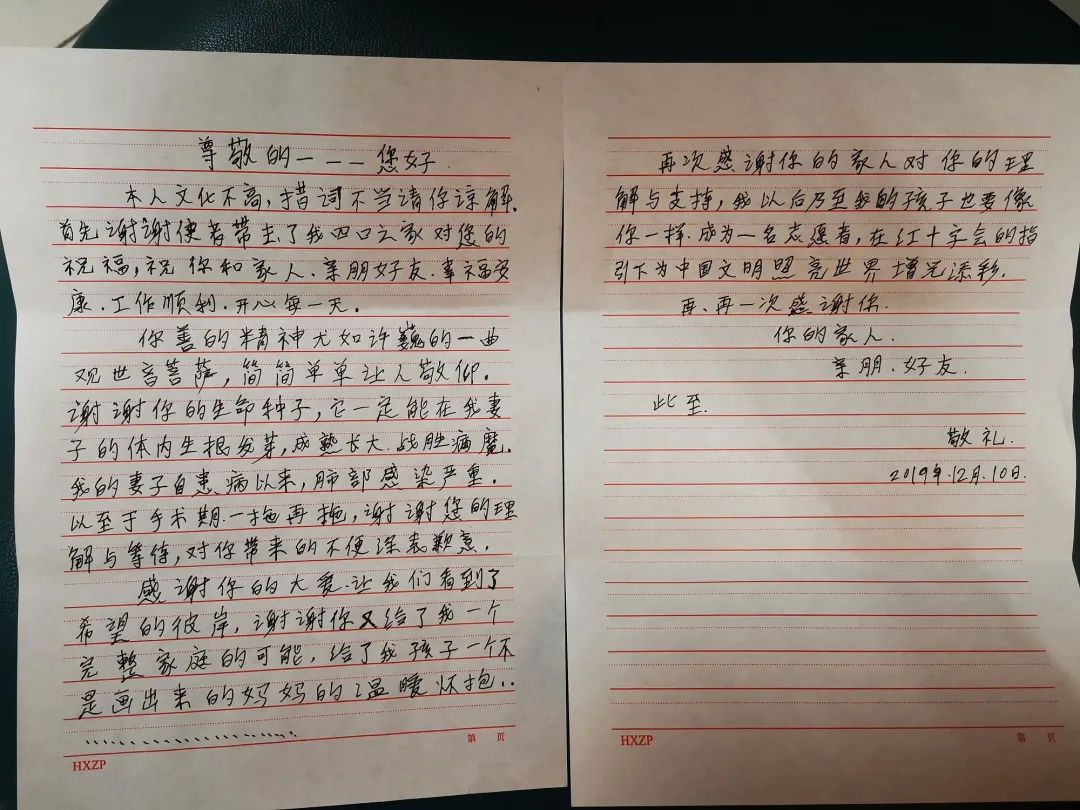 尊敬的---您好.
本人文化不高,措词不当请你谅解.
首先谢谢使者带去了我四口之家对您的
祝福,祝你和家人.亲朋好友.幸福安
康.工作顺利.开心每一天.
你善的精神尤如许巍的一曲
观世音菩萨,简简单单让人敬仰.
谢谢你的生命种子,它一定能在我妻
子的体内生根发芽,成熟长大.战胜病魔.
我的妻子自患病以来,肺部感染严重.
以至于手术期一拖再拖,谢谢您的理
解与等待,对你带来的不便深表歉意.
感谢你的大爱.让我们看到了
希望的彼岸,谢谢你又给了我一个
完整家庭的可能,给了我孩子一个不
是画出来的妈妈的温暖怀抱..
..........................
HXZP 第 页
再次感谢你的家人对你的理
解与支持,我以后乃至我的孩子也要像
你一样.成为一名志愿者,在红十字会的指
引下为中国文明照亮世界增光添彩.
再、再一次感谢你.
你的家人.
亲朋.好友.
此至.
敬礼.
2019年.12月.10日.
HXZP 第 页